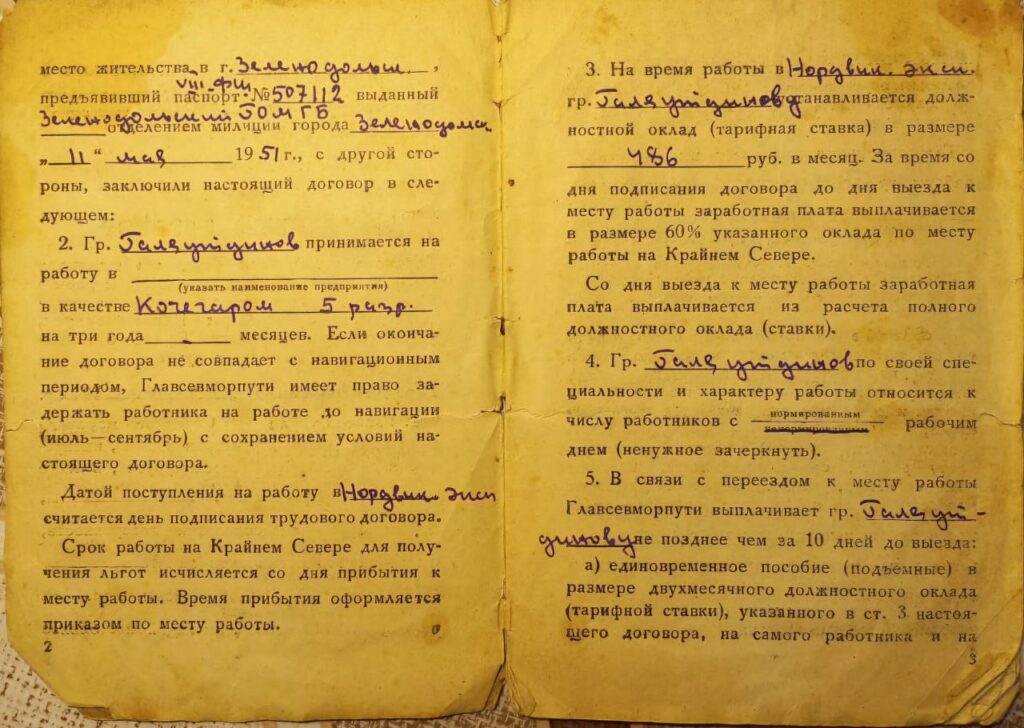 место жительства в г. Зеленодольск,
VIII-ФЩ
предъявивший паспорт №507112 выданный
Зеленодольский ГОМГБ
отделением милиции города Зеленодольск
„11“ мая 1951 г., с другой сто-
роны, заключили настоящий договор в сле-
дующем:
2. Гр. Галяутдинов принимается на
работу в
(указать наименование предприятия)
в качестве Кочегаром 5 разр.
на три года - месяцев. Если оконча-
ние договора не совпадает с навигационным
периодом, Главсевморпути имеет право за-
держать работника на работе до навигации
(июль—сентябрь) с сохранением условий на-
стоящего договора.
Датой поступления на работу в Нордвик. эксп
считается день подписания трудового договора.
Срок работы на Крайнем Севере для полу-
чения льгот исчисляется со дня прибытия к
месту работы. Время прибытия оформляется
приказом по месту работы.
2
3. На время работы в Нордвик. эксп.
гр. Галяутдинову устанавливается долж-
ностной оклад (тарифная ставка) в размере
486 руб. в месяц. За время со
дня подписания договора до дня выезда к
месту работы заработная плата выплачивается
в размере 60% указанного оклада по месту
работы на Крайнем Севере.
Со дня выезда к месту работы заработная
плата выплачивается из расчета полного
должностного оклада (ставки).
4. Гр. Галяутдинов по своей спе-
циальности и характеру работы относится к
нормированным
числу работников с ненормированным рабочим
днем (ненужное зачеркнуть).
5. В связи с переездом к месту работы
Главсевморпути выплачивает гр. Галяут-
динову не позднее чем за 10 дней до выезда:
а) единовременное пособие (подъемные) в
размере двухмесячного должностного оклада
(тарифной ставки), указанного в ст. 3 настоя-
щего договора, на самого работника и на
3